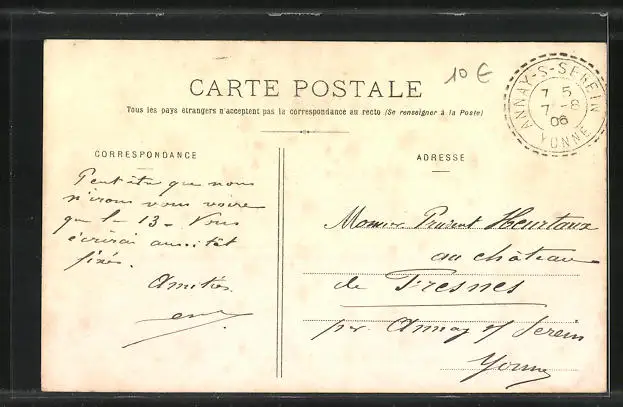 CARTE POSTALE
10 €
Tous les pays étrangers n'acceptent pas la correspondance au recto (Se renseigner à la Poste)
ANNAY-S-SEREIN
7 5
7 -8
06
YONNE
CORRESPONDANCE
Peut être que nous
n'irons vous voir
que le 13. Vous
écrirai aussitôt
fixés.
Amitiés.
ADRESSE
Monsieur Prudent Heurtaux
au château
de Fresnes
par Annay s/ Serein
Yonne